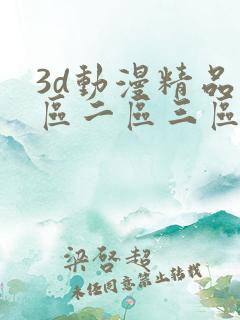 3d動漫精品
區二區三區
梁啓超
未任同意禁止转载